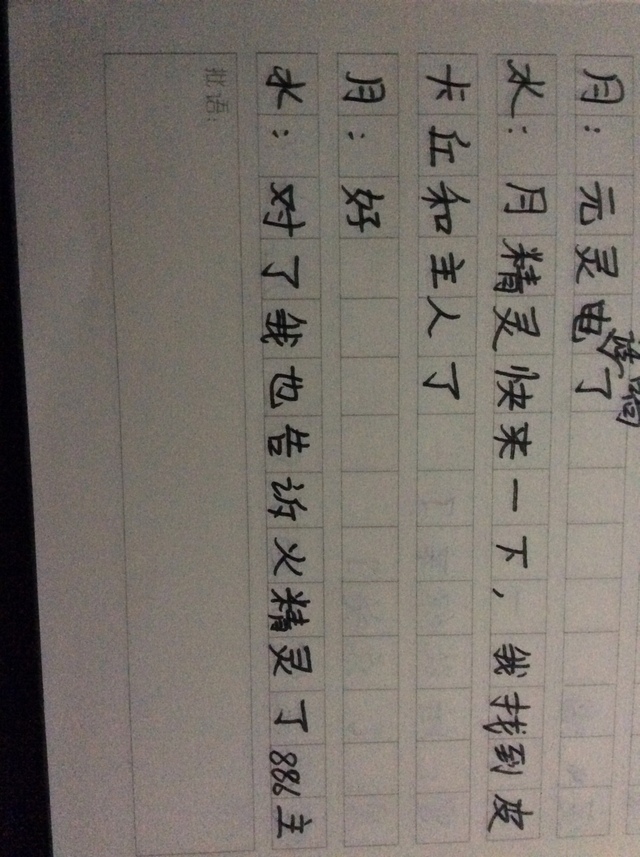 月：元灵电话响了
水：月精灵快来一下，我找到皮
卡丘和主人了
月：好
水：对了我也告诉火精灵了886主
批语：